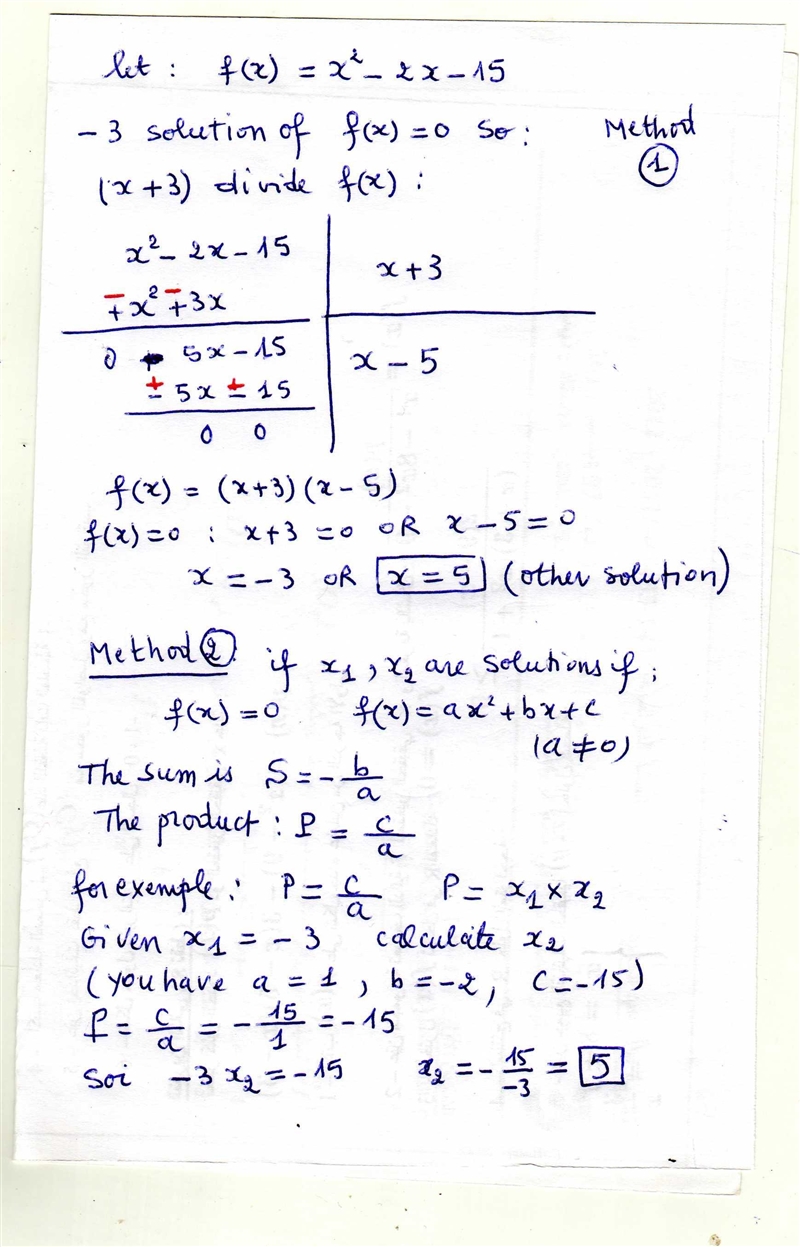 let : f(x) = x² - 2x - 15
- 3 solution of f(x) = 0 so :
Method
1
(x + 3) divide f(x) :
x² - 2x - 15
x + 3
∓ x² ∓ 3x
0 - 5x - 15
x - 5
± 5x ± 15
0 0
f(x) = (x+3)(x - 5)
f(x) = 0 : x+3 = 0 OR x - 5 = 0
x = -3 OR x = 5 (other solution)
Method 2. if x₁, x₂ are solutions if ;
f(x) = 0 f(x) = ax² + bx + c
(a ≠ 0)
The sum is S = - b/a
The product : P = c/a
for exemple : P = c/a P = x₁ × x₂
Given x₁ = - 3 calculate x₂
(you have a = 1 , b = -2, c = -15)
P = c/a = - 15/1 = - 15
Soi -3 x₂ = - 15 x₂ = - 15/-3 = 5